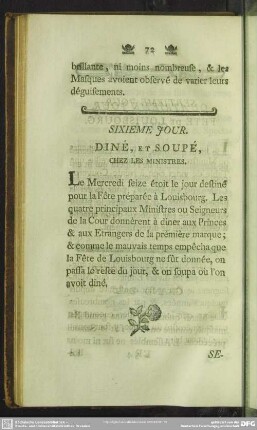 72
brillante, ni moins nombreuse, & les
Masques avoient observé de varier leurs
déguisemens.
SIXIEME JOUR.
DINÉ, ET SOUPÉ,
CHEZ LES MINISTRES.
Le Mercredi seize étoit le jour destiné
pour la Fête préparée à Louisbourg. Les
quatre principaux Ministres ou Seigneurs
de la Cour donnèrent à diner aux Princes
& aux Etrangers de la prémière marque;
& comme le mauvais temps empêcha que
la Fête de Louisbourg ne fût donnée, on
passa le reste du jour, & on soupa où l'on
avoit diné.
SE-